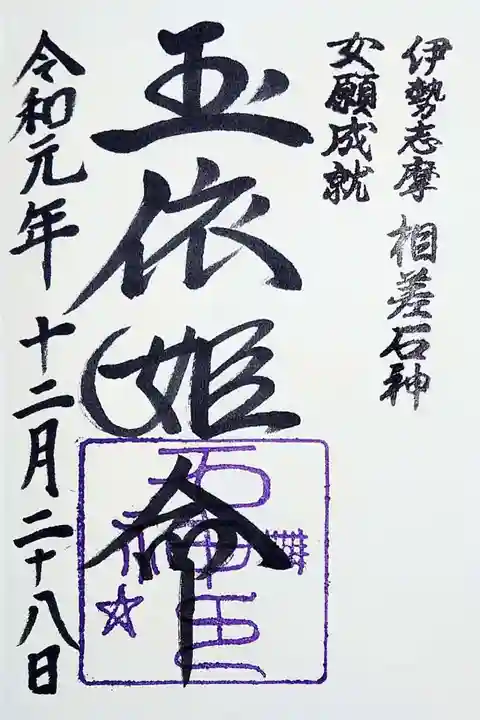 伊勢志摩 相差石神
女願成就
玉依姫命
石神
令和元年 十二月二十八日